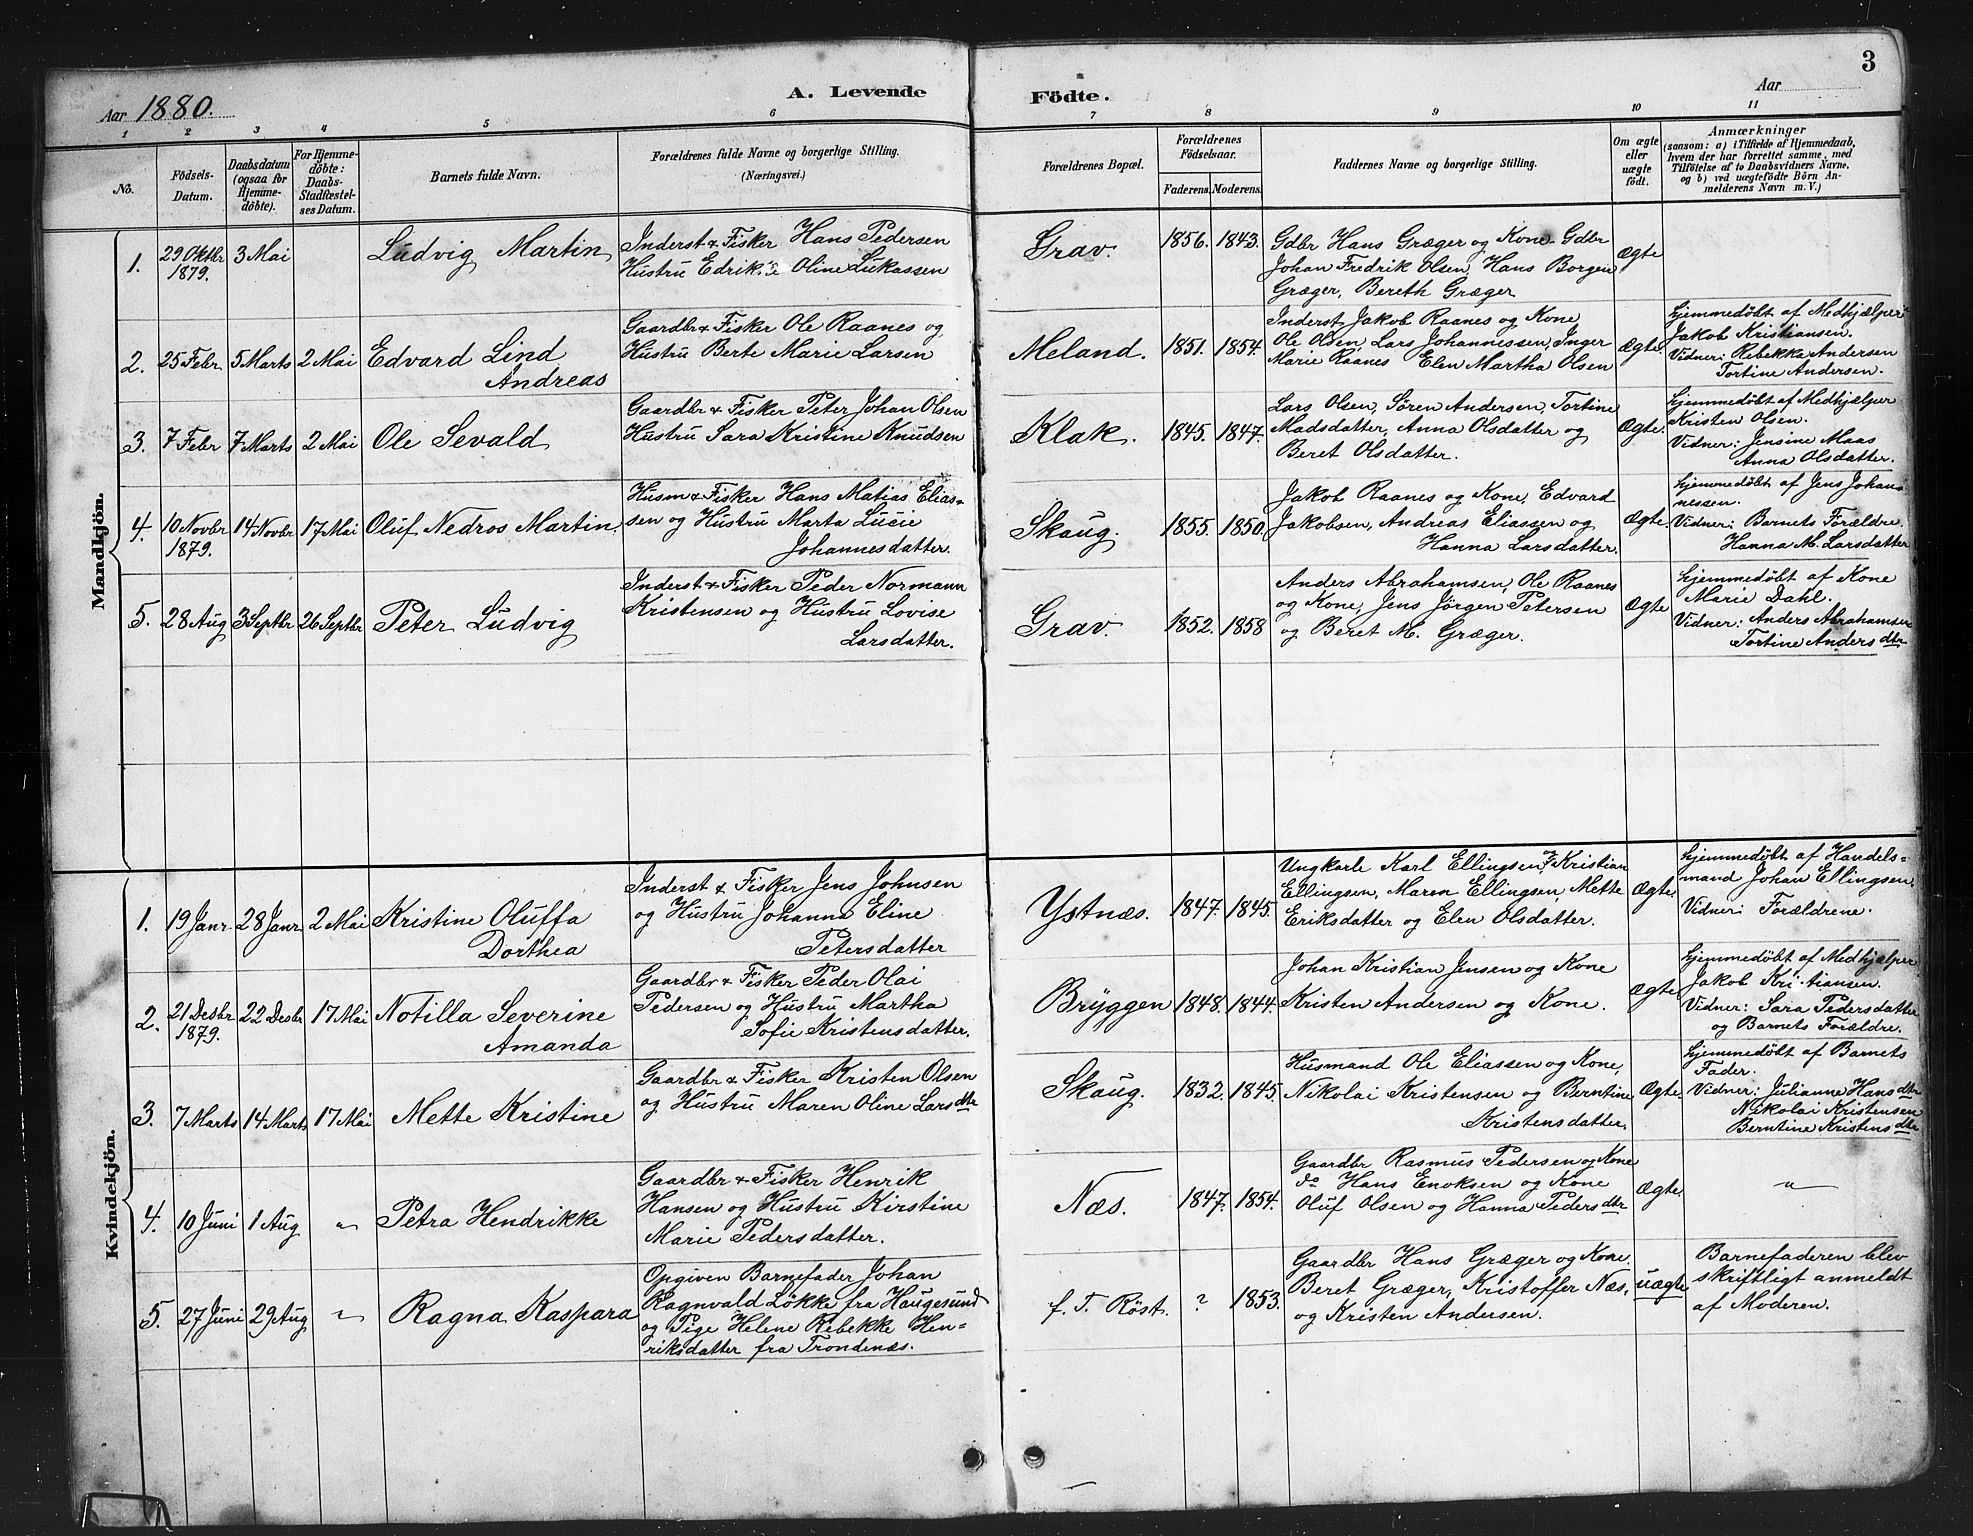 Aar 1880.
A. Levende
Födte.
Aar
3
1 2 3 4 5 6 7 8 9 10 11
No.
Födsels-
Datum.
Daabsdatum
(ogsaa for
Hjemme-
döbte).
For Hjemme-
döbte:
Daabs-
Stadfæstel-
ses Datum.
Barnets fulde Navn.
Forældrenes fulde Navne og borgerlige Stilling.
(Næringsvei.)
Forældrenes Bopæl.
Forældrenes
Födselsaar.
Faderens. Moderens.
Faddernes Navne og borgerlige Stilling.
Om ægte
eller
uægte
födt.
Anmærkninger
(saasom: a) i Tilfælde af Hjemmedaab,
hvem der har forrettet samme, med
Tilföielse af to Daabsvidners Navne,
og b) ved uegtefödte Börn An-
melderens Navn m. V.)
Mandkjön.
1.
29 Oktbr
1879.
3 Mai
Ludvig Martin
Inderst & Fisker Hans Pedersen
Hustru Edrikke Oline Lukassen
Grav.
1856. 1843.
Gdbr Hans Græger og Kone. Gdbr
Johan Fredrik Olsen, Hans Borgen
Græger, Bereth Græger
Ægte
2.
25 Febr
5 Marts
2 Mai
Edvard Lind
Andreas
Gaardbr & Fisker Ole Raanes og
Hustru Berte Marie Larsen
Meland.
1851. 1854.
Inderst Jakob Raanes og Kone
Ole Olsen, Lars Johannessen, Inger
Marie Raanes Elen Martha Olsen
Ægte.
Hjemmedøbt af Medhjælper
Jakob Kristiansen.
Vidner: Rebekka Andersen
Tortine Andersen.
3.
7 Febr
7 Marts
2 Mai
Ole Sevald
Gaardbr & Fisker Peter Johan Olsen
Hustru Sara Kristine Knudsen
Klak.
1845. 1847.
Lars Olsen, Sören Andersen, Tortine
Madsdatter, Anna Olsdatter og
Beret Olsdatter.
Ægte.
Hjemmedøbt af Medhjælper
Kristen Olsen.
Vidner: Jensine Maas
Anna Olsdatter.
4.
10 Novbr
1879.
14 Novbr
17 Mai
Oluf Nedros Martin
Husm & Fisker Hans Matias Elias-
sen og Hustru Marta Lucie
Johannesdatter.
Skaug.
1855. 1850.
Jakob Raanes og Kone, Edvard
Jakobsen, Andreas Eliassen og
Hanna Larsdatter.
Ægte.
Hjemmedøbt af Jens Johan-
nessen.
Vidner: Barnets Forældre.
Hanna M. Larsdatter
5.
28 Aug
3 Septbr
26 Septbr
Peter Ludvig
Inderst & Fisker Peder Normann
Kristensen og Hustru Lovise
Larsdatter.
Grav.
1852. 1858
Anders Abrahamsen, Ole Raanes
og Kone, Jens Jörgen Petersen
og Beret M. Græger.
Ægte
Hjemmedøbt af Kone
Marie Dahl.
Vidner: Anders Abrahamsen
Tortine Andersdtr
Kvindekjön.
1.
19 Janr
28 Janr
2 Mai
Kristine Oluffa
Dorthea
Inderst & Fisker Jens Johnsen
og Hustru Johanna Eline
Petersdatter
Ystnæs.
1847. 1845.
Ungkarle Karl Ellingsen og Kristian
Ellingsen, Maren Ellingsen, Mette
Eriksdatter og Elen Olsdatter.
Ægte.
Hjemmedøbt af Handels-
mand Johan Ellingsen.
Vidner: Forældrene.
2.
21 Desbr
1879.
22 Desbr
17 Mai
Notilla Severine
Amanda
Gaardbr & Fisker Peder Olai
Pedersen og Hustru Martha
Sofie Kristensdatter.
Bryggen
1848. 1844.
Johan Kristian Jensen og Kone
Kristen Andersen og Kone.
Ægte
Hjemmedøbt af Medhjælper
Jakob Kristiansen.
Vidner: Sara Pedersdatter
og Barnets Forældre.
3.
7 Marts
14 Marts
17 Mai
Mette Kristine
Gaardbr & Fisker Kristen Olsen
og Hustru Maren Oline Larsdtr
Skaug.
1832. 1845.
Husmand Ole Eliassen og Kone,
Nikolai Kristensen og Berntine
Kristensdatter.
Ægte.
Hjemmedøbt af Barnets
Fader.
Vidner: Julianne Hansdtr
Nikolai Kristensen
Berntine Kristensdtr
4.
10 Juni
1 Aug
"
Petra Hendrikke
Gaardbr & Fisker Henrik
Hansen og Hustru Kirstine
Marie Pedersdatter.
Næs.
1847. 1854.
Gaardbr Rasmus Pedersen og Kone
do Hans Enoksen og Kone
Oluf Olsen og Hanna Pedersdtr
Ægte.
"
5.
27 Juni
29 Aug
"
Ragna Kaspara
Opgiven Barnefader Johan
Ragnvald Løkke fra Haugesund
og Pige Helene Rebekke Hen-
riksdatter fra Trondenæs.
f. T. Röst.
? 1853.
Gaardbr Hans Græger og Kone.
Beret Græger, Kristoffer Næs,
og Kristen Andersen.
uægte
Barnefaderen blev
skriftligt anmeldt
af Moderen.